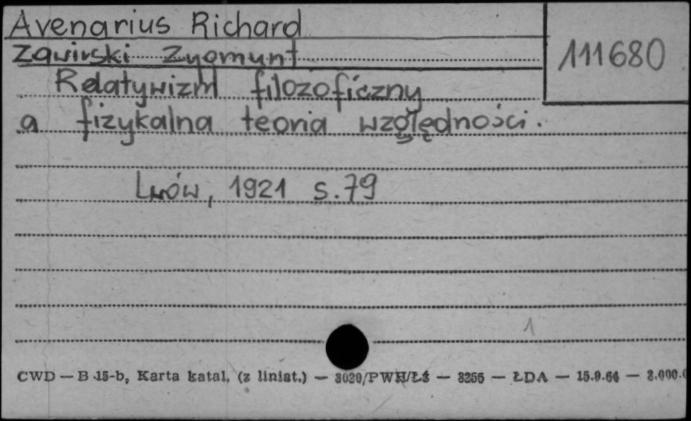 Avenarius Richard
111680
Zawirski Zygmunt
Relatywizm filozoficzny
a fizykalna teoria względności.
Lwów, 1921 s.79
1
CWD — B 15-b, Karta katal. (z liniat.) — 3020/PWH/ŁŻ — 3255 — ŁDA — 15.9.66 — 2.000.